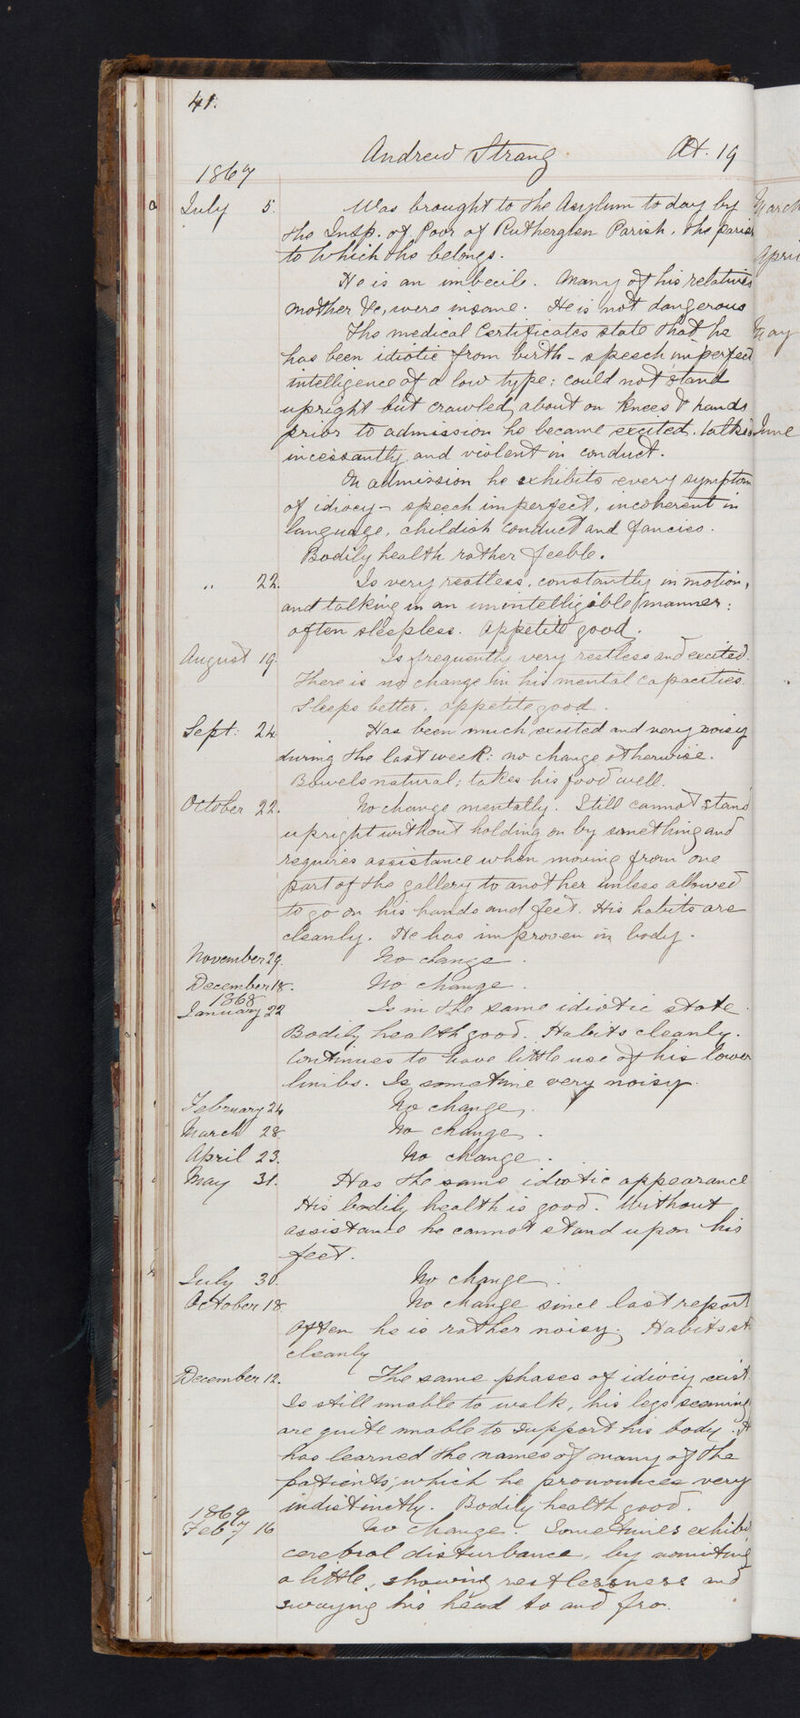 41.
Andrew Strang Æt. 19
1867
July 5. Was brought to the Asylum to day by
the Insp. of Poor of Rutherglen Parish, the parish
to which he belongs.
He is an imbecile. Many of his relatives
mother &c, were insane. He is not dangerous
The medical Certificates state that he
has been idiotic from birth - speech imperfect
intelligence of a low type: could not stand
upright but crawled about on knees & hands
prior to admission he became excited. talks
incessantly and violent in conduct.
On admission he exhibits every symptom
of idiocy - speech imperfect, incoherent in
language, childish conduct and fancies.
Bodily health rather feeble.
" 22. Is very restless, constantly in motion,
and talking in an unintelligible manner:
often sleepless. Appetite good.
August 19. Is frequently very restless and excited.
There is no change in his mental capacities.
Sleeps better, appetite good.
Sept: 24 Has been much excited and very noisy
during the last week: no change otherwise.
Bowels natural; takes his food well.
October 22. No change mentally. Still cannot stand
upright without holding on by something and
requires assistance when moving from one
part of the gallery to another unless allowed
to go on his hands and feet. His habits are
cleanly. He has improven in body.
November 29. No change.
December 18. No change.
1868
January 22 Is in the same idiotic state.
Bodily health good. Habits cleanly.
Continues to have little use of his lower
limbs. Is sometime very noisy.
February 24 No change.
March 28. No change.
April 23. No change.
May 31. Has the same idiotic appearance
His bodily health is good. Without
assistance he cannot stand upon his
feet.
July 30. No change.
October 18 No change since last report
Often he is rather noisy. Habits
cleanly
December 12. The same phases of idiocy exist
Is still unable to walk, his legs seeming
are quite unable to support his body.
has learned the names of many of the
patients, which he pronounces very
indistinctly. Bodily health good.
1869
Feby 16 No change. Sometimes exhibi
cerebral disturbance, by vomiting
a little, showing restlessness and
swaying his head to and fro.
March
April
May
June